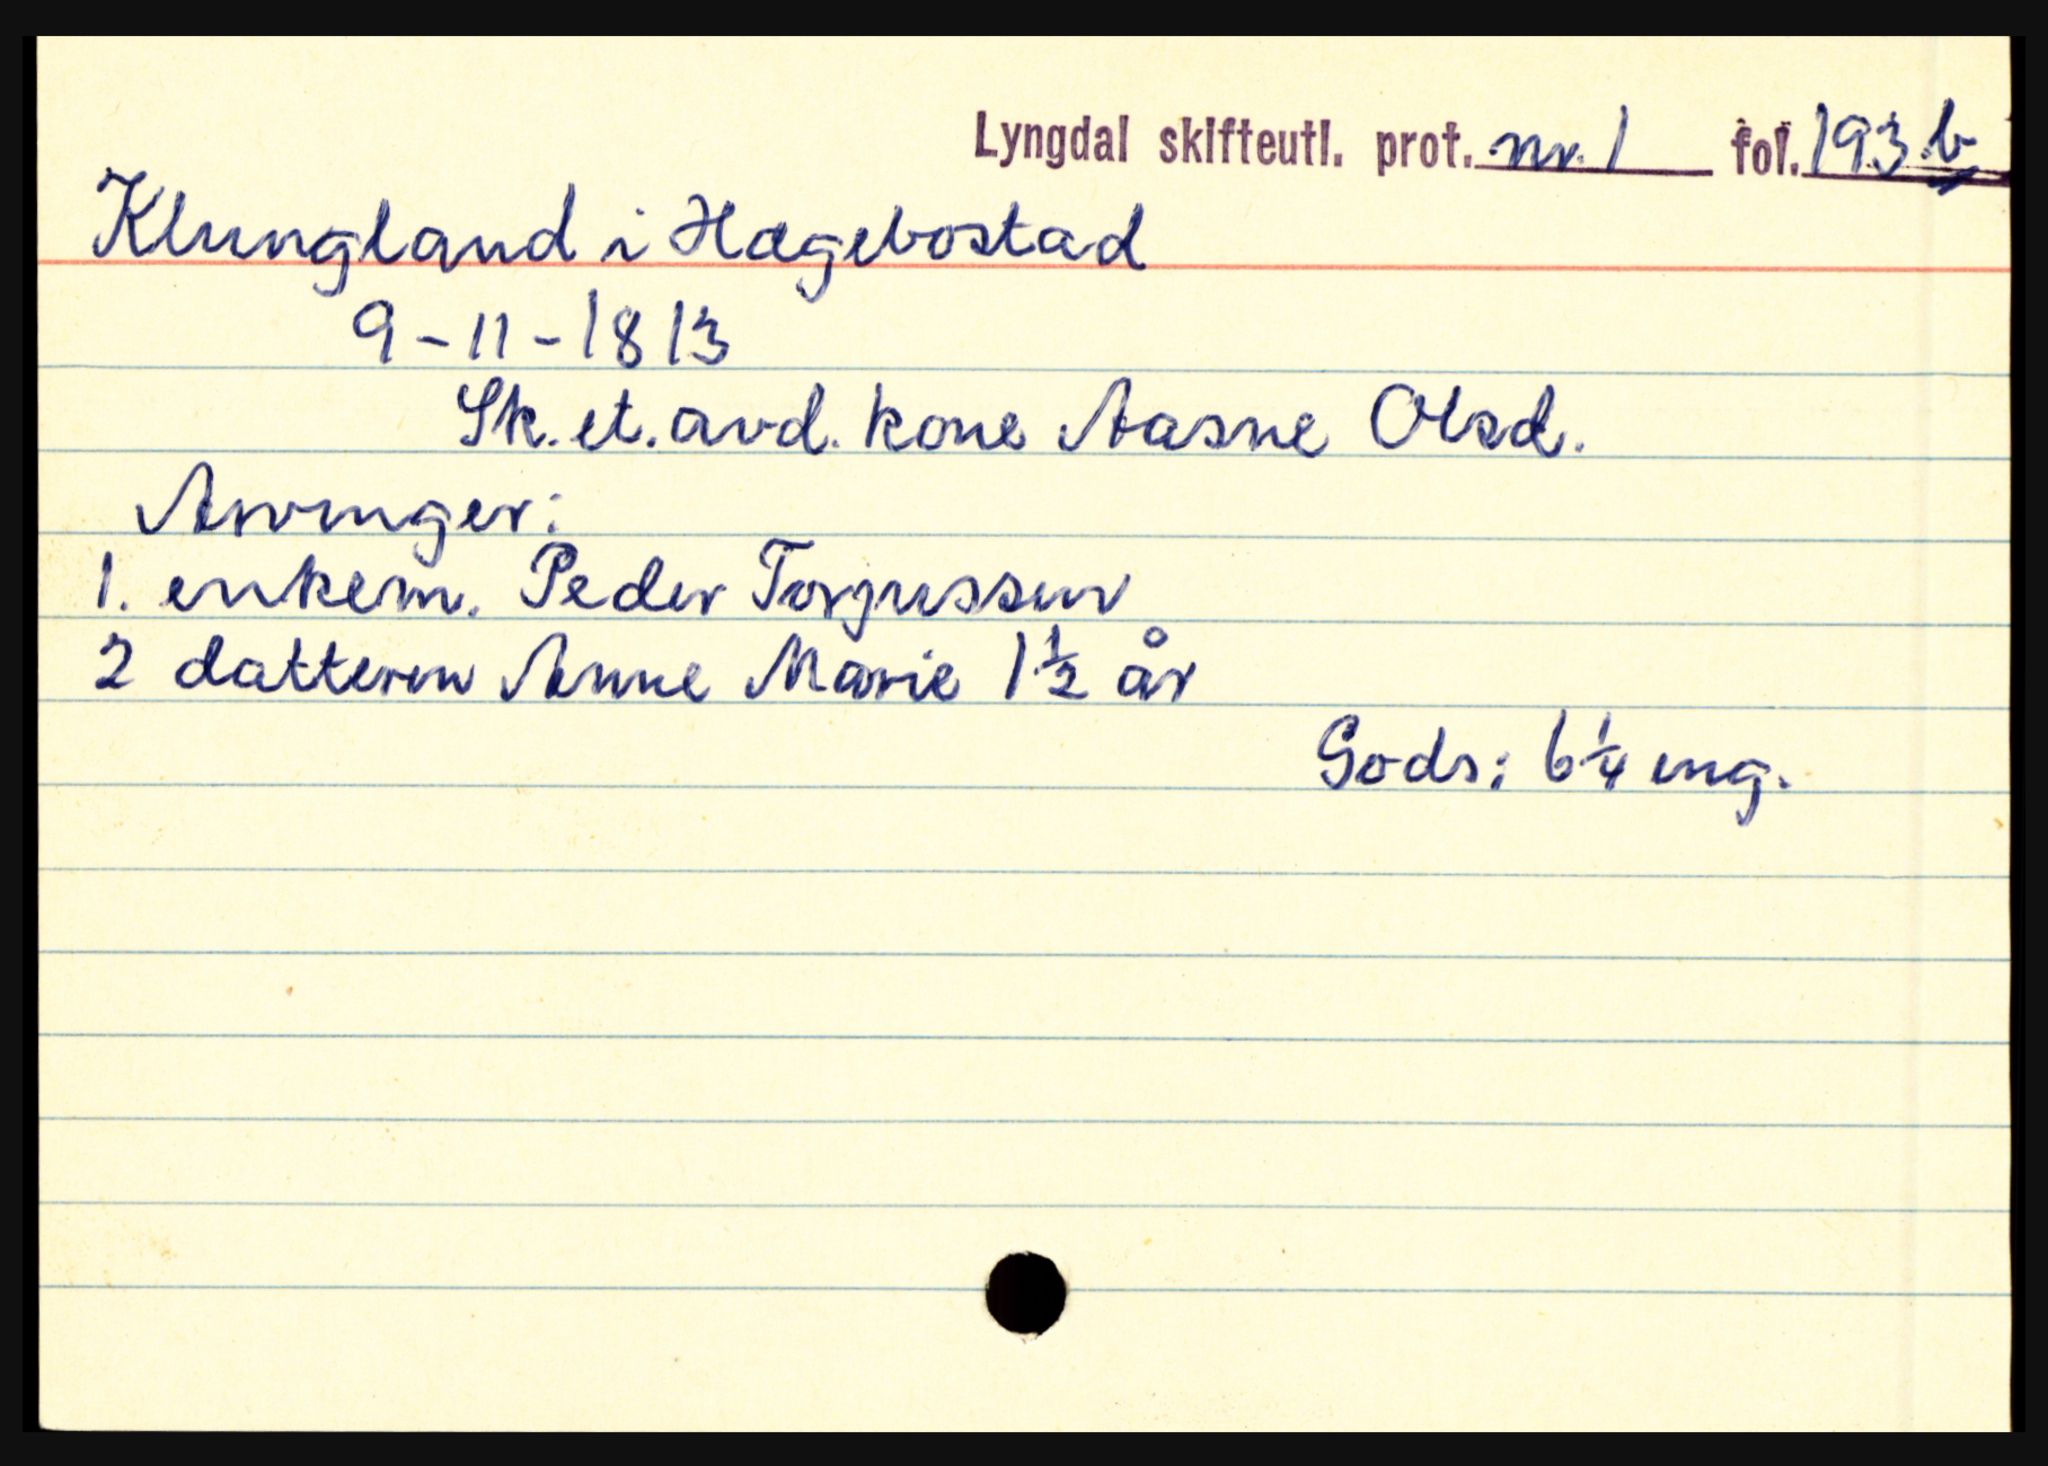 Lyngdal skifteutl. prot. nr. 1 fol. 193 b
Klungland i Hægebostad
9-11-1813
Sk. et. avd. kone Aasne Olsd.
Arvinger:
1. enkem. Peder Torjussen
2 datteren Anne Marie 1 1/2 år
Gods: 6 1/4 eng.